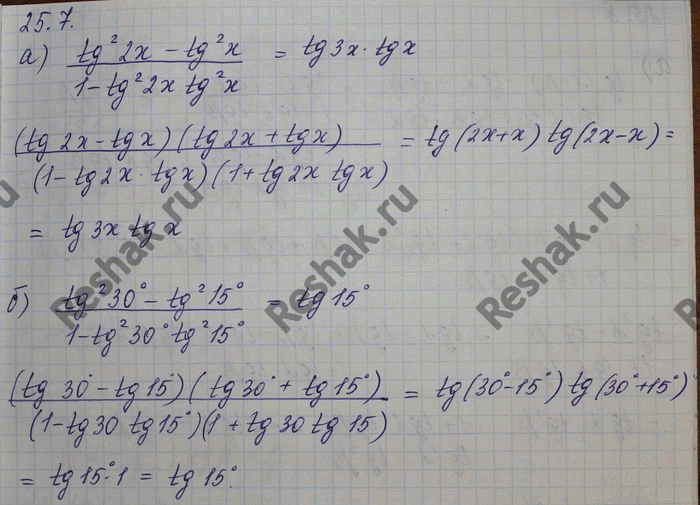 25.7.
а) (tg²2x - tg²x)/(1 - tg²2x tg²x) = tg3x·tgx
((tg 2x - tgx)(tg 2x + tgx))/((1 - tg2x·tgx)(1 + tg2x tgx)) = tg(2x+x) tg(2x-x) =
= tg3x tgx
б) (tg²30° - tg²15°)/(1 - tg²30° tg²15°) = tg15°
((tg 30° - tg15°)(tg30° + tg15°))/((1 - tg30 tg15°)(1 + tg30 tg15)) = tg(30°-15°) tg(30°+15°)
= tg15°·1 = tg15°.
Reshak.ru
Reshak.ru
Reshak.ru
Reshak.ru